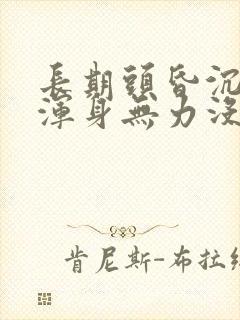 長期頭昏沉
渾身無力沒
肯尼斯-布拉